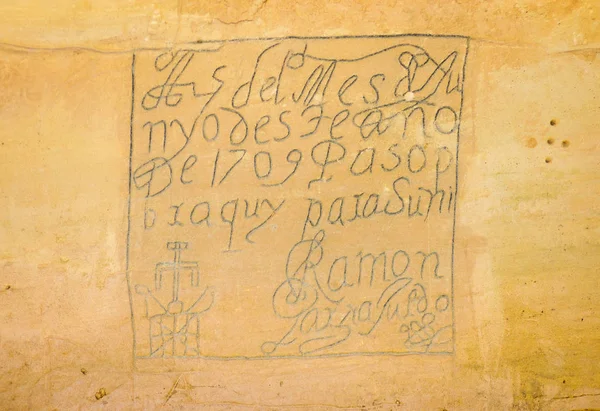 A 25 del Mes de Ju
nyo deste año
De 1709 Paso p
or aquy para Suni
Ramon
Garsia Jurado